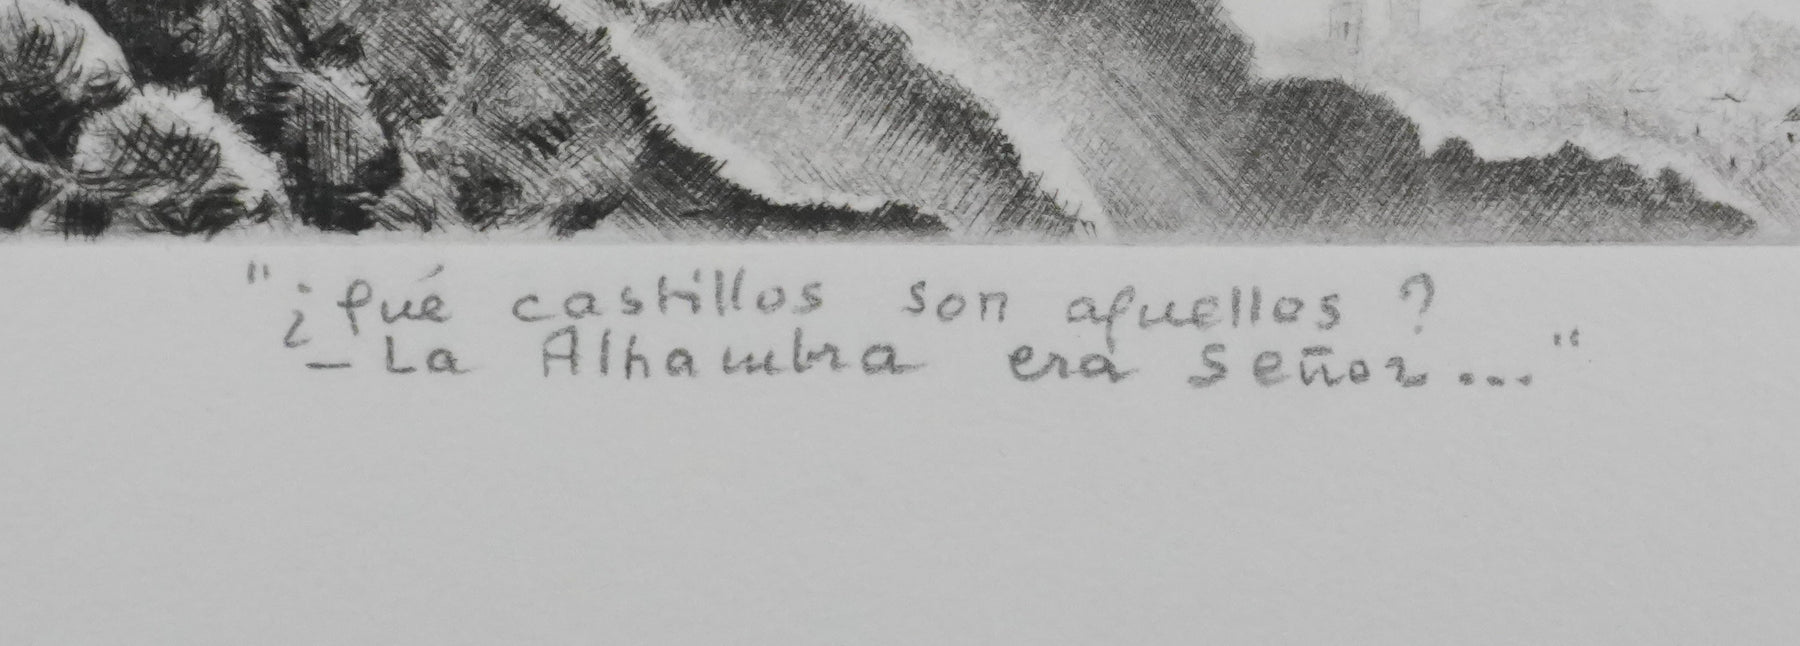 "¿Qué castillos son aquellos?
– La Alhambra era Señor..."